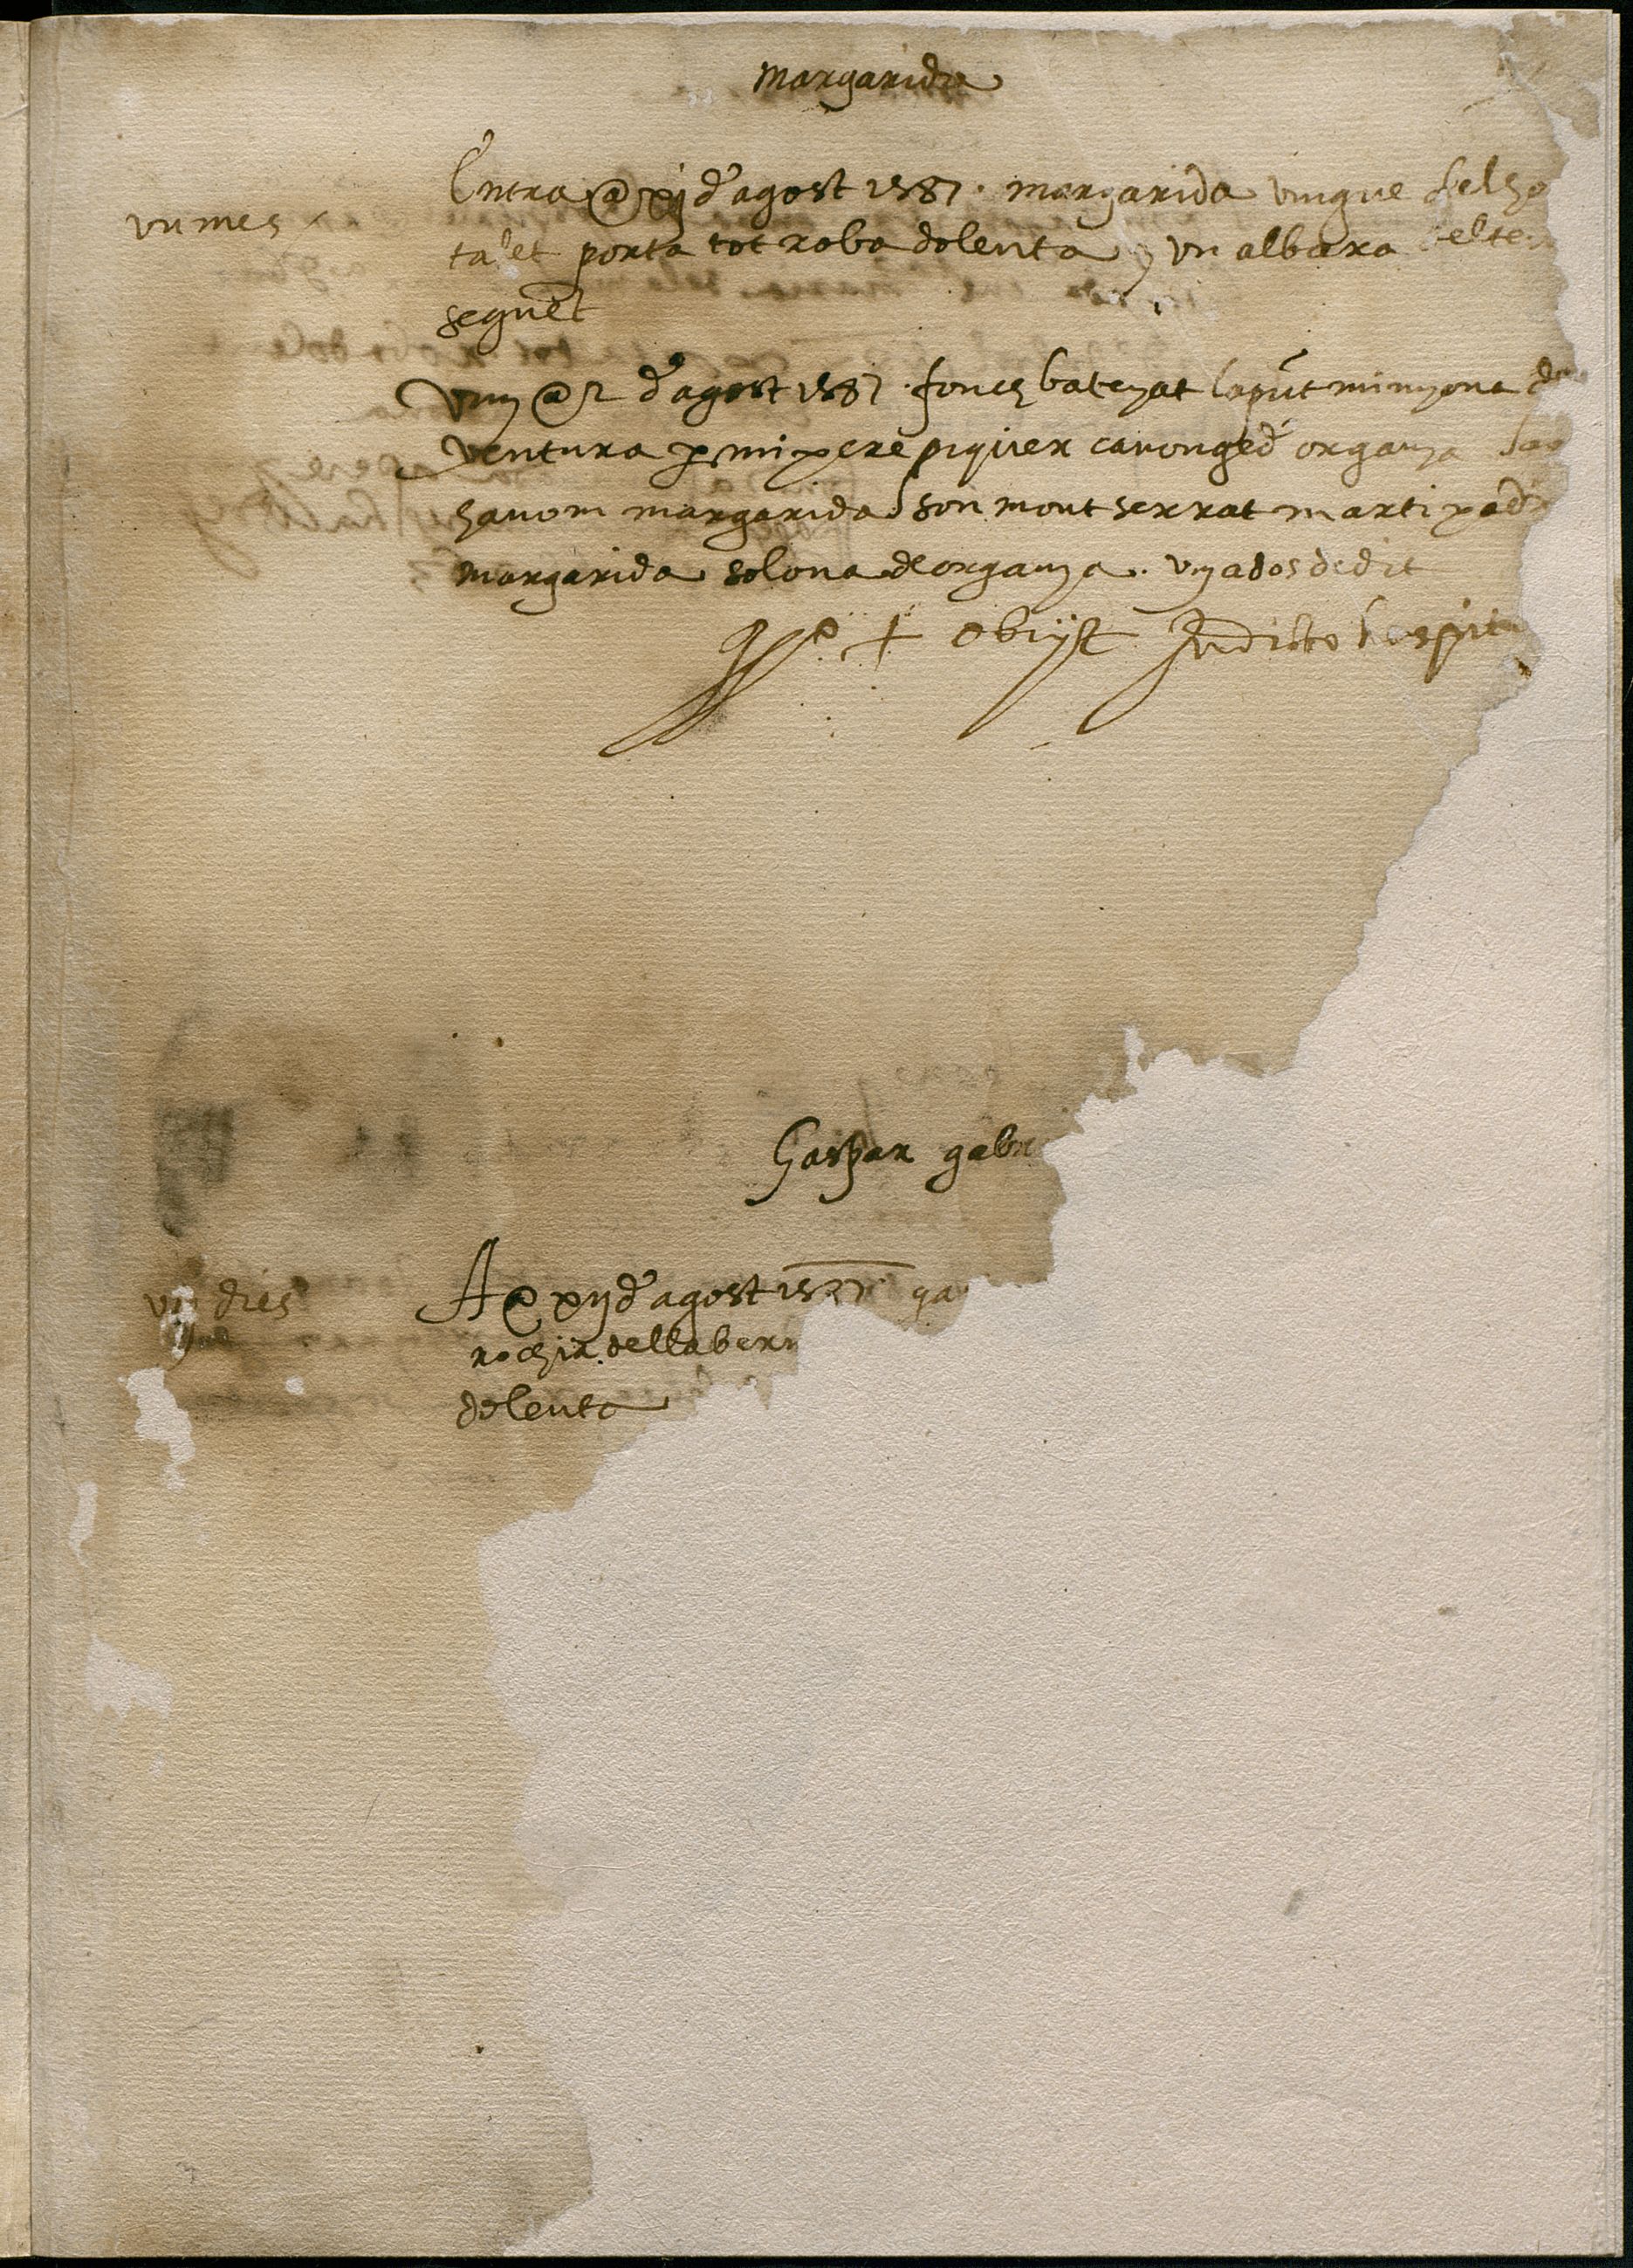 margarida
vn mes
Entra @ xj d'agost 1587. margarida vingue del ho
talet porta tot roba dolenta y vn albara del te
seguẽt
Vuy @ 2 d'agost 1587. fonch bateyat la pñt minyona de
Ventura p mi pere piquer canonge d' organya
ha nom margarida son mont serrat marti y ad
margarida solona de organya. vuy a dos dedit
+ obijt In dicto hospit
Gaspar gabr
dies
A @ xij d'agost 1587 ga
rochir. della bern
dolenta